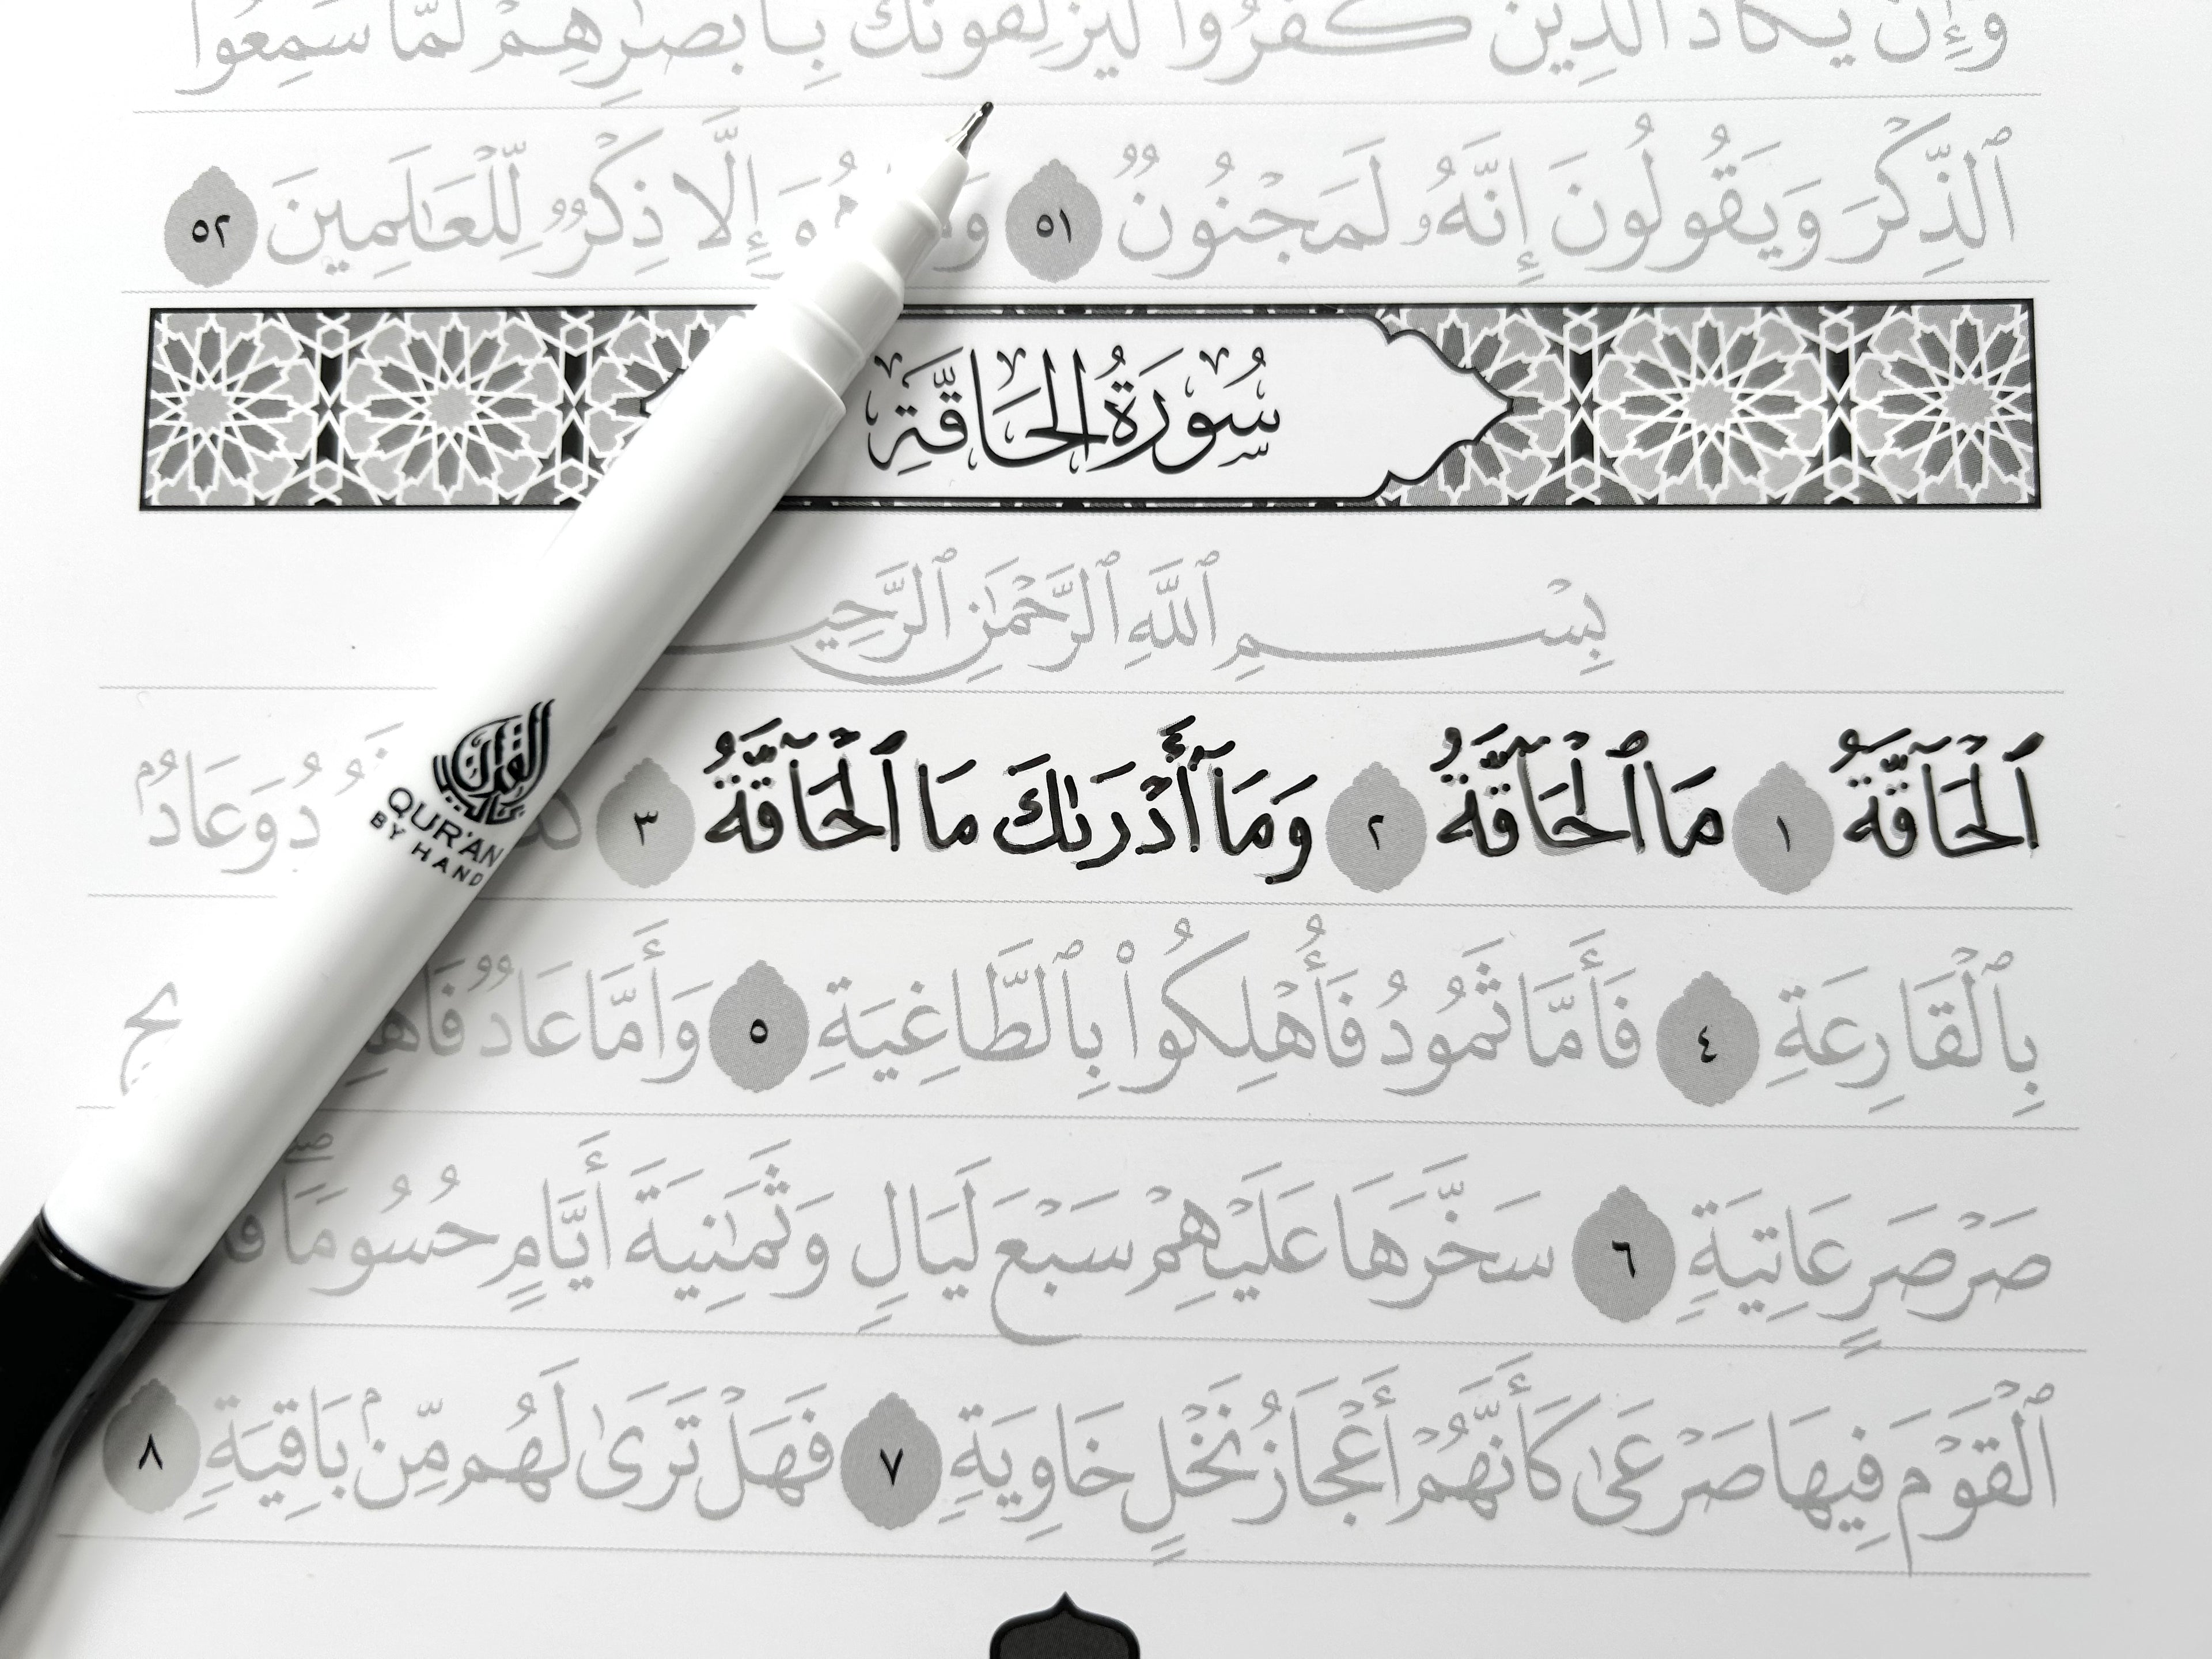 وَإِن يَكَادُ ٱلَّذِينَ كَفَرُوا۟ لَيُزْلِقُونَكَ بِأَبْصَٰرِهِمْ لَمَّا سَمِعُوا۟
ٱلذِّكْرَ وَيَقُولُونَ إِنَّهُۥ لَمَجْنُونٌ ٥١ هُوَ إِلَّا ذِكْرٌ لِّلْعَٰلَمِينَ ٥٢
سُورَةُ الحَاقَّةِ
بِسْمِ ٱللَّهِ ٱلرَّحْمَٰنِ
ٱلْحَآقَّةُ ١ مَا ٱلْحَآقَّةُ ٢ وَمَآ أَدْرَىٰكَ مَا ٱلْحَآقَّةُ ٣ وَعَادٌۢ
بِٱلْقَارِعَةِ ٤ فَأَمَّا ثَمُودُ فَأُهْلِكُوا۟ بِٱلطَّاغِيَةِ ٥ وَأَمَّا عَادٌ
صَرْصَرٍ عَاتِيَةٍ ٦ سَخَّرَهَا عَلَيْهِمْ سَبْعَ لَيَالٍ وَثَمَٰنِيَةَ أَيَّامٍ حُسُومًا
ٱلْقَوْمَ فِيهَا صَرْعَىٰ كَأَنَّهُمْ أَعْجَازُ نَخْلٍ خَاوِيَةٍ ٧ فَهَلْ تَرَىٰ لَهُم مِّنۢ بَاقِيَةٍ ٨
QUR'AN
BY HAND